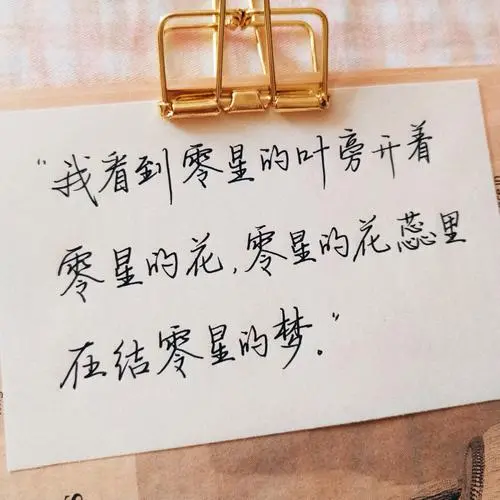 “我看到零星的叶旁开着
零星的花,零星的花蕊里
在结零星的梦。”